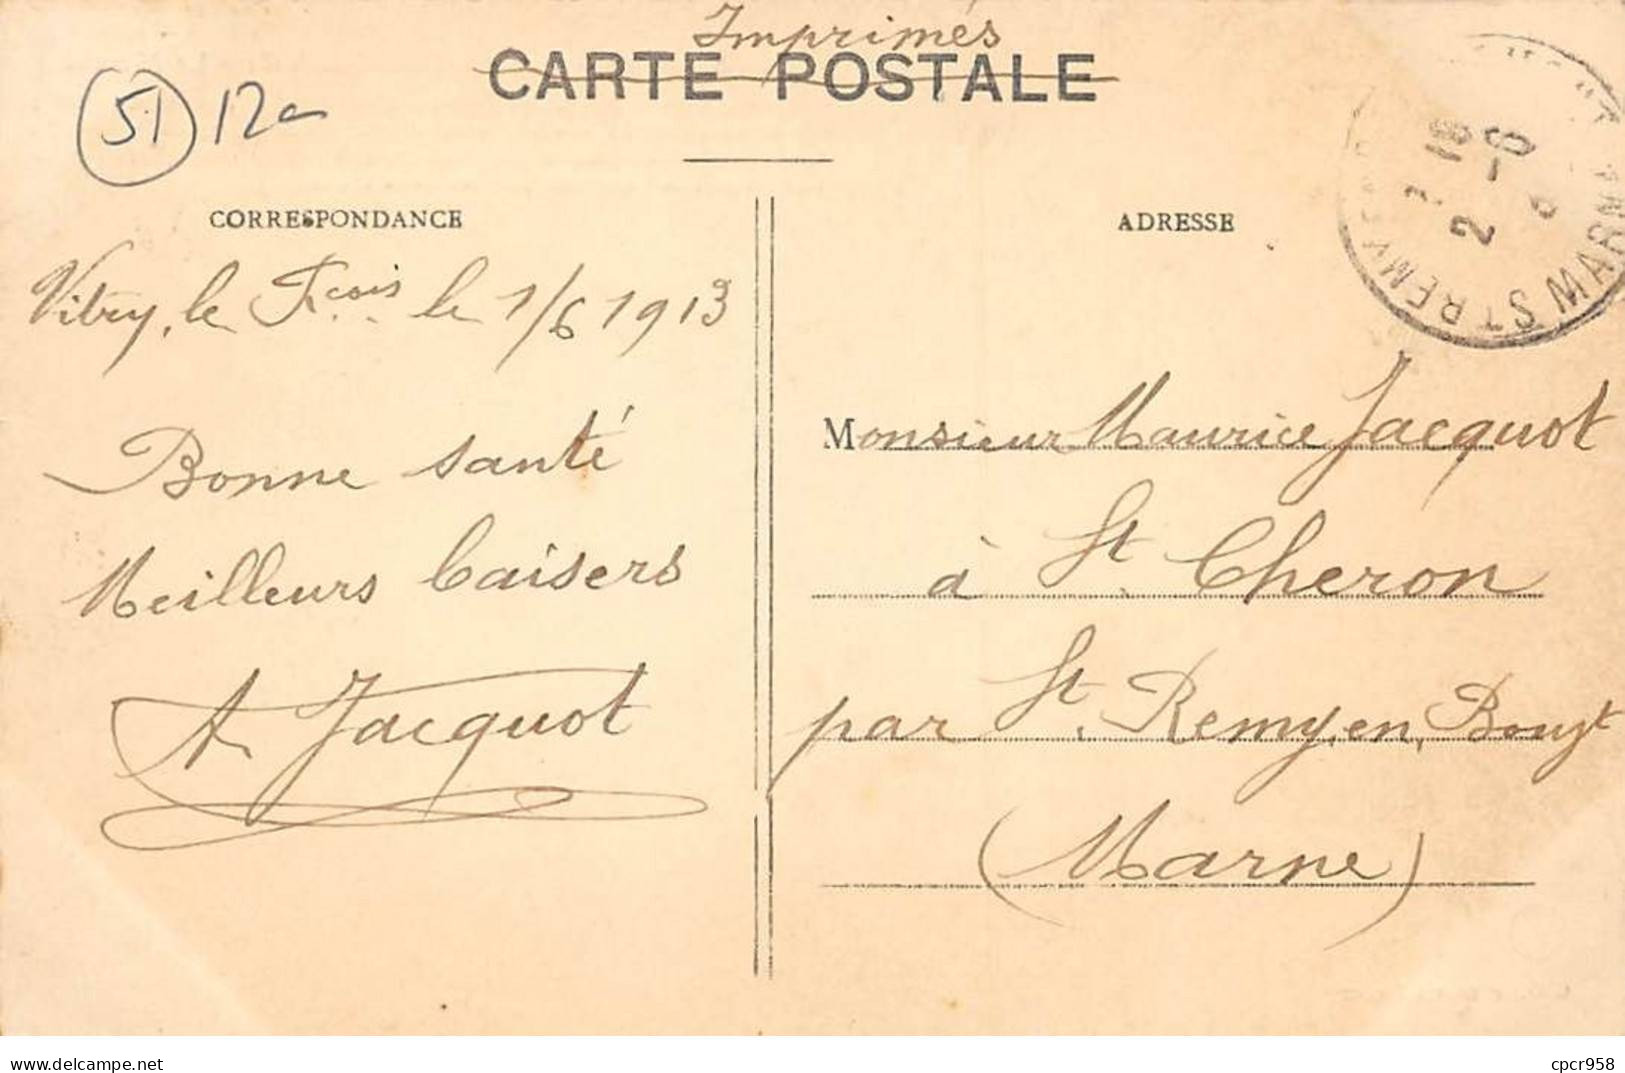 Imprimés
CARTE POSTALE
(51) 12
CORRESPONDANCE
Vitry, le Fcois le 1/6 1913
Bonne santé
Meilleurs baisers
A. Jacquot
ADRESSE
ST REMY EN MARNE
2 -6
Monsieur Maurice Jacquot
à St. Cheron
par St. Remy, en, Bouzt
(Marne)
delcampe.net
cpcr958